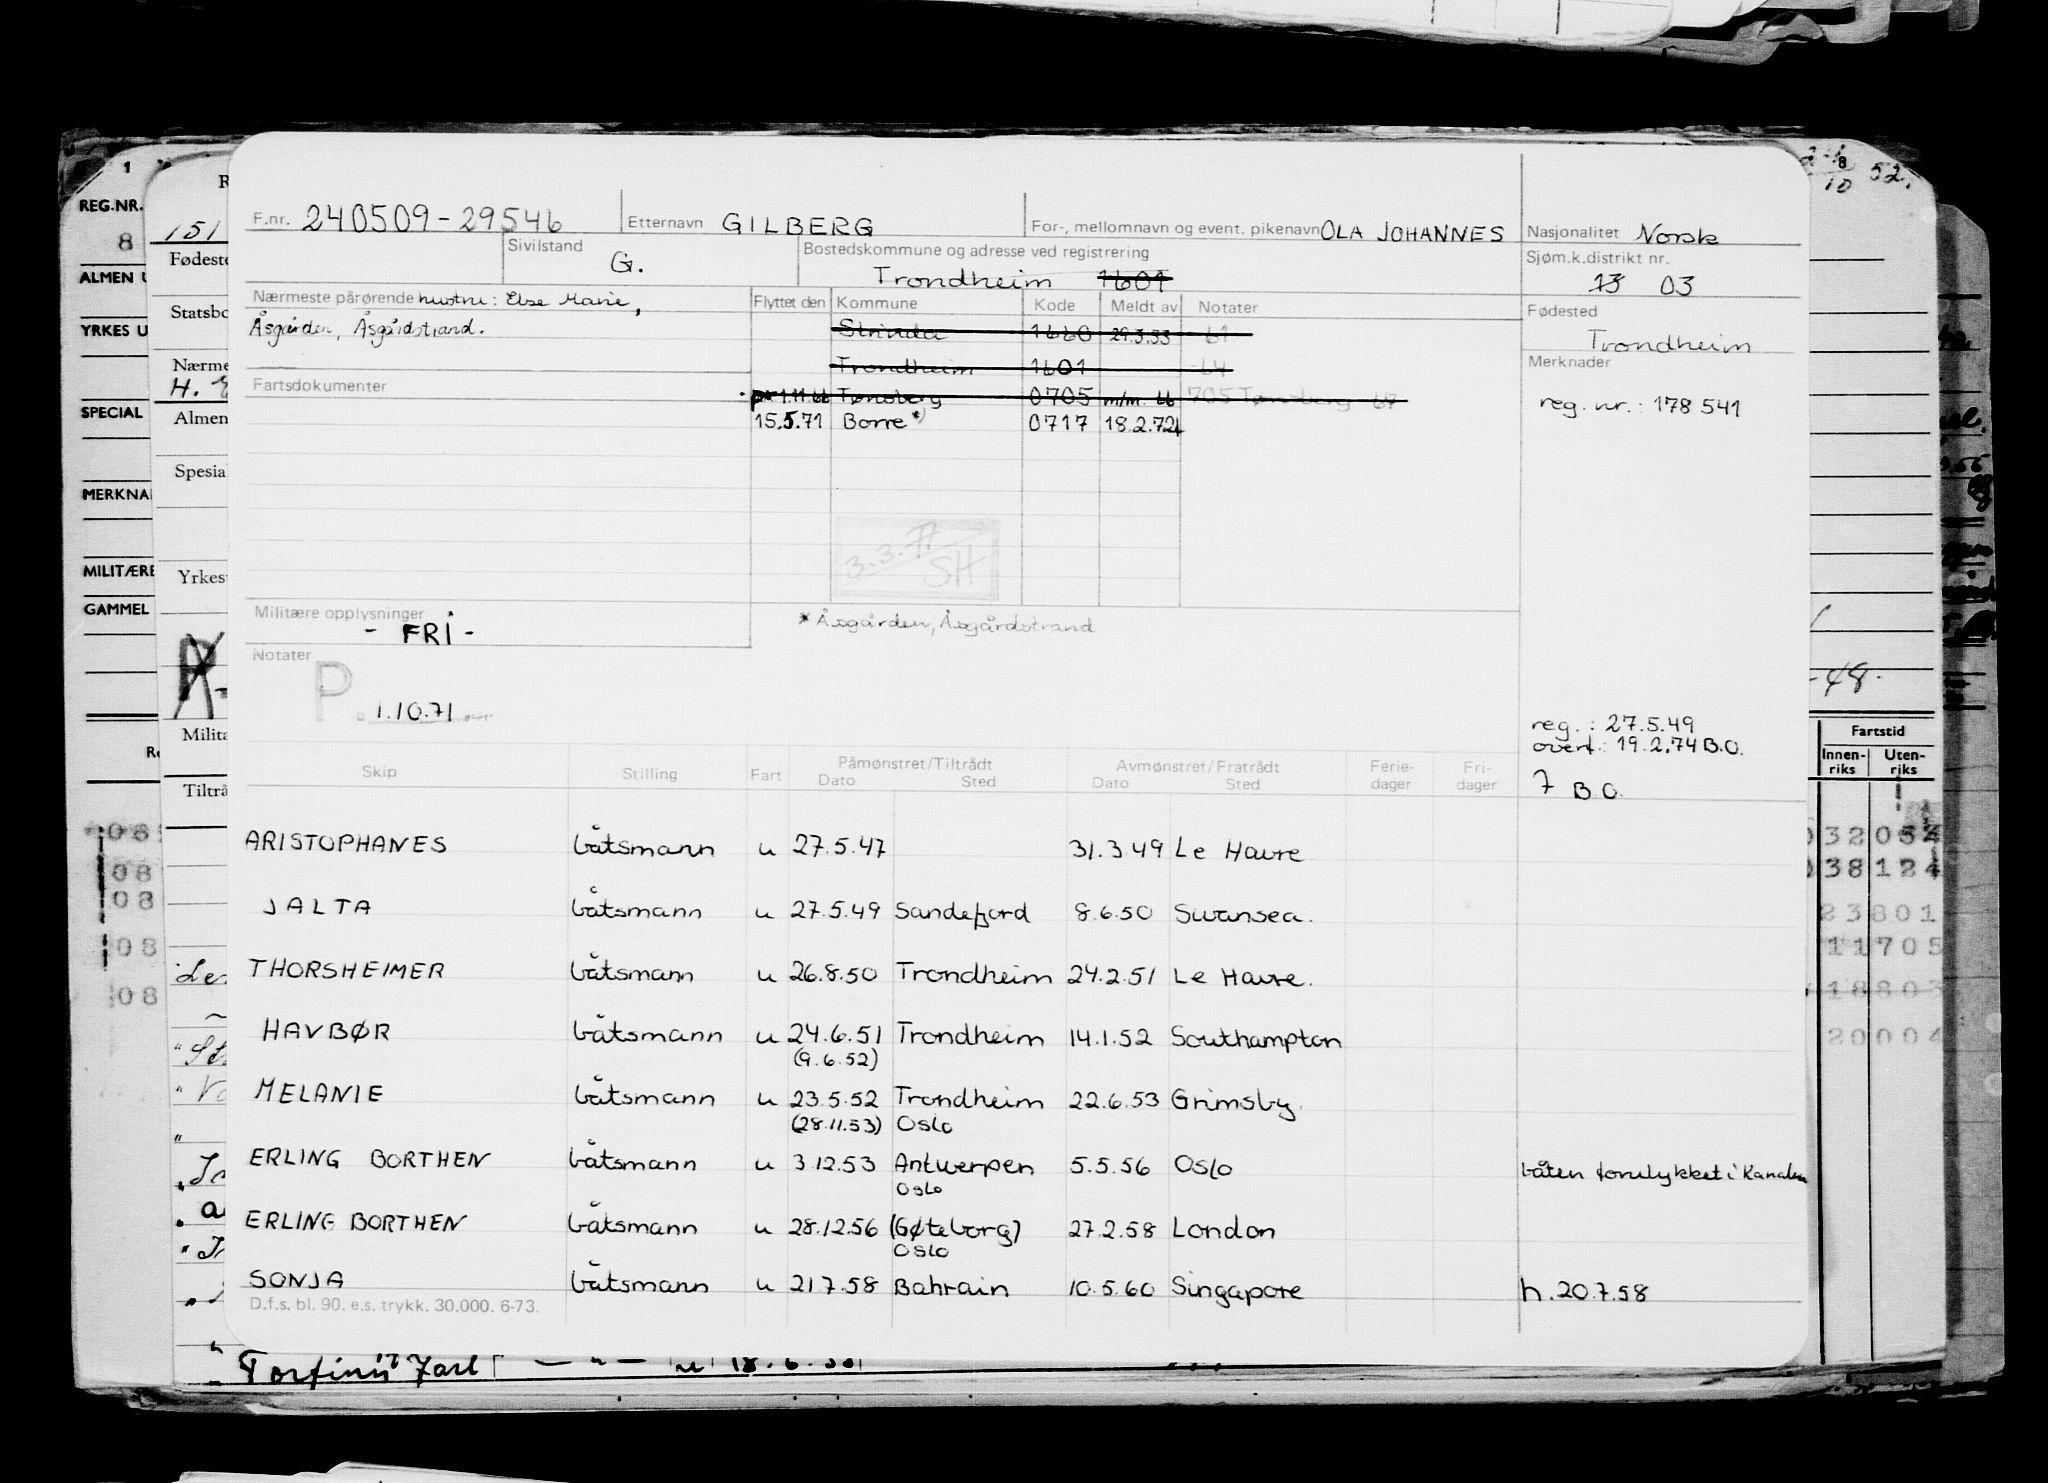 F.nr. 240509-29546 Etternavn GILBERG For-, mellomnavn og event. pikenavn OLA JOHANNES Nasjonalitet Norsk
Sivilstand G. Bostedskommune og adresse ved registrering Sjøm.k.distrikt nr.
Trondheim 1601 13 03
Nærmeste pårørende hustru: Else Marie, Flyttet den Kommune Kode Meldt av Notater Fødested
Åsgården, Åsgårdstrand. Strinda 1660 29.3.53 -61 Trondheim
Trondheim 1601 -64 Merknader
Fartsdokumenter 1.11.66 Tønsberg 0705 m/m. 66 705 Tønsberg 67 reg. nr.: 178541
15.5.71 Borre *) 0717 18.2.74
3.3.77 SH
Militære opplysninger
- FRI - * Åsgården, Åsgårdstrand
Notater
P. 1.10.71
reg.: 27.5.49
overf.: 19.2.74 B.O.
7 B O.
Skip Stilling Fart Påmønstret/Tiltrådt Dato Sted Avmønstret/Fratrådt Dato Sted Ferie-dager Fri-dager
ARISTOPHANES båtsmann u 27.5.47 31.3.49 Le Havre
JALTA båtsmann u 27.5.49 Sandefjord 8.6.50 Swansea.
THORSHEIMER båtsmann u 26.8.50 Trondheim 24.2.51 Le Havre.
HAVBØR båtsmann u 24.6.51 Trondheim 14.1.52 Southampton
(9.6.52)
MELANIE båtsmann u 23.5.52 Trondheim 22.6.53 Grimsby.
(28.11.53) Oslo
ERLING BORTHEN båtsmann u 3.12.53 Antwerpen 5.5.56 Oslo båten forulykket i Kanalen
Oslo
ERLING BORTHEN båtsmann u 28.12.56 (Gøteborg) 27.2.58 London
Oslo
SONJA båtsmann u 21.7.58 Bahrain 10.5.60 Singapore h. 20.7.58
D.f.s. bl. 90. e.s. trykk. 30.000. 6-73.
Torfinn Jarl — " — u 18.6.30
1
REG.NR.
8
151
ALMEN
SPECIAL
GAMMEL
8
10
52.
-48.
Fartstid
Innen-riks Uten-riks